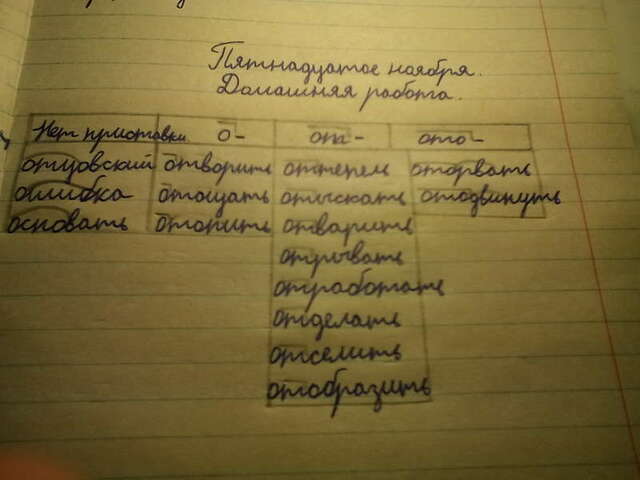 Пятнадцатое ноября.
Домашняя работа.
Нет приставки о- от- ото-
отцовский отворить оттепель оторвать
ошибка отощать отыскать отодвинуть
основать отопить отварить
отрывать
отработать
отделать
отселить
отобразить